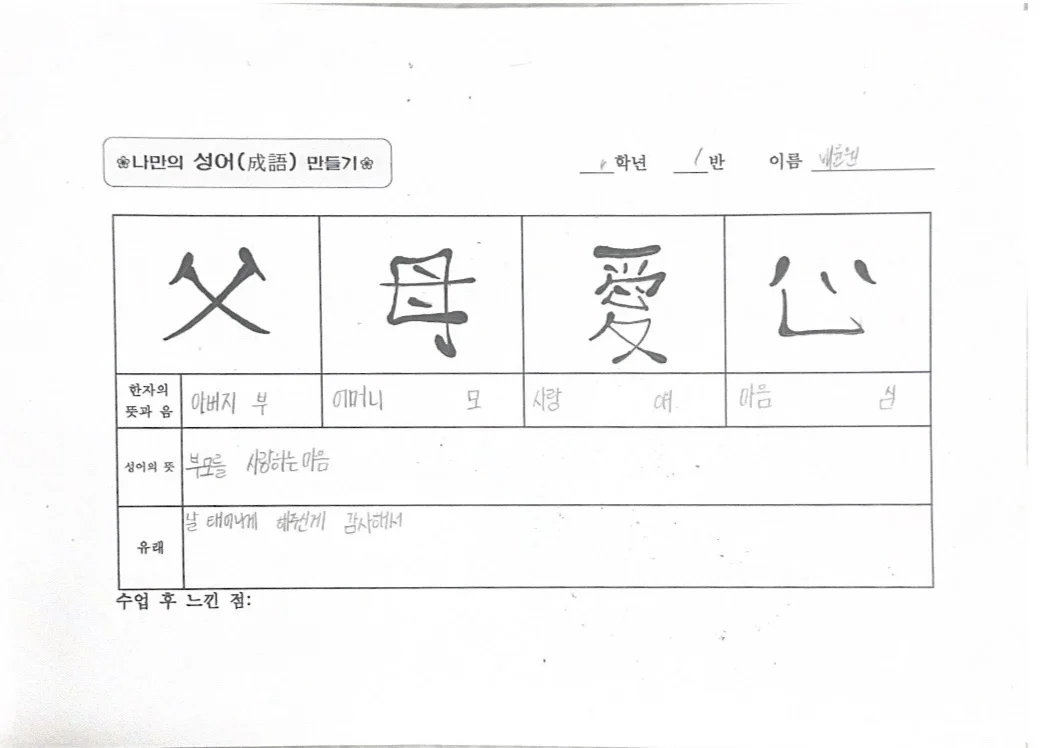 ❀나만의 성어(成語) 만들기❀
학년 1반 이름 배윤원
父 母 愛 心
한자의 뜻과 음 아버지 부 어머니 모 사랑 애 마음 심
성어의 뜻 부모를 사랑하는 마음
유래 날 태어나게 해주신게 감사해서
수업 후 느낀 점: